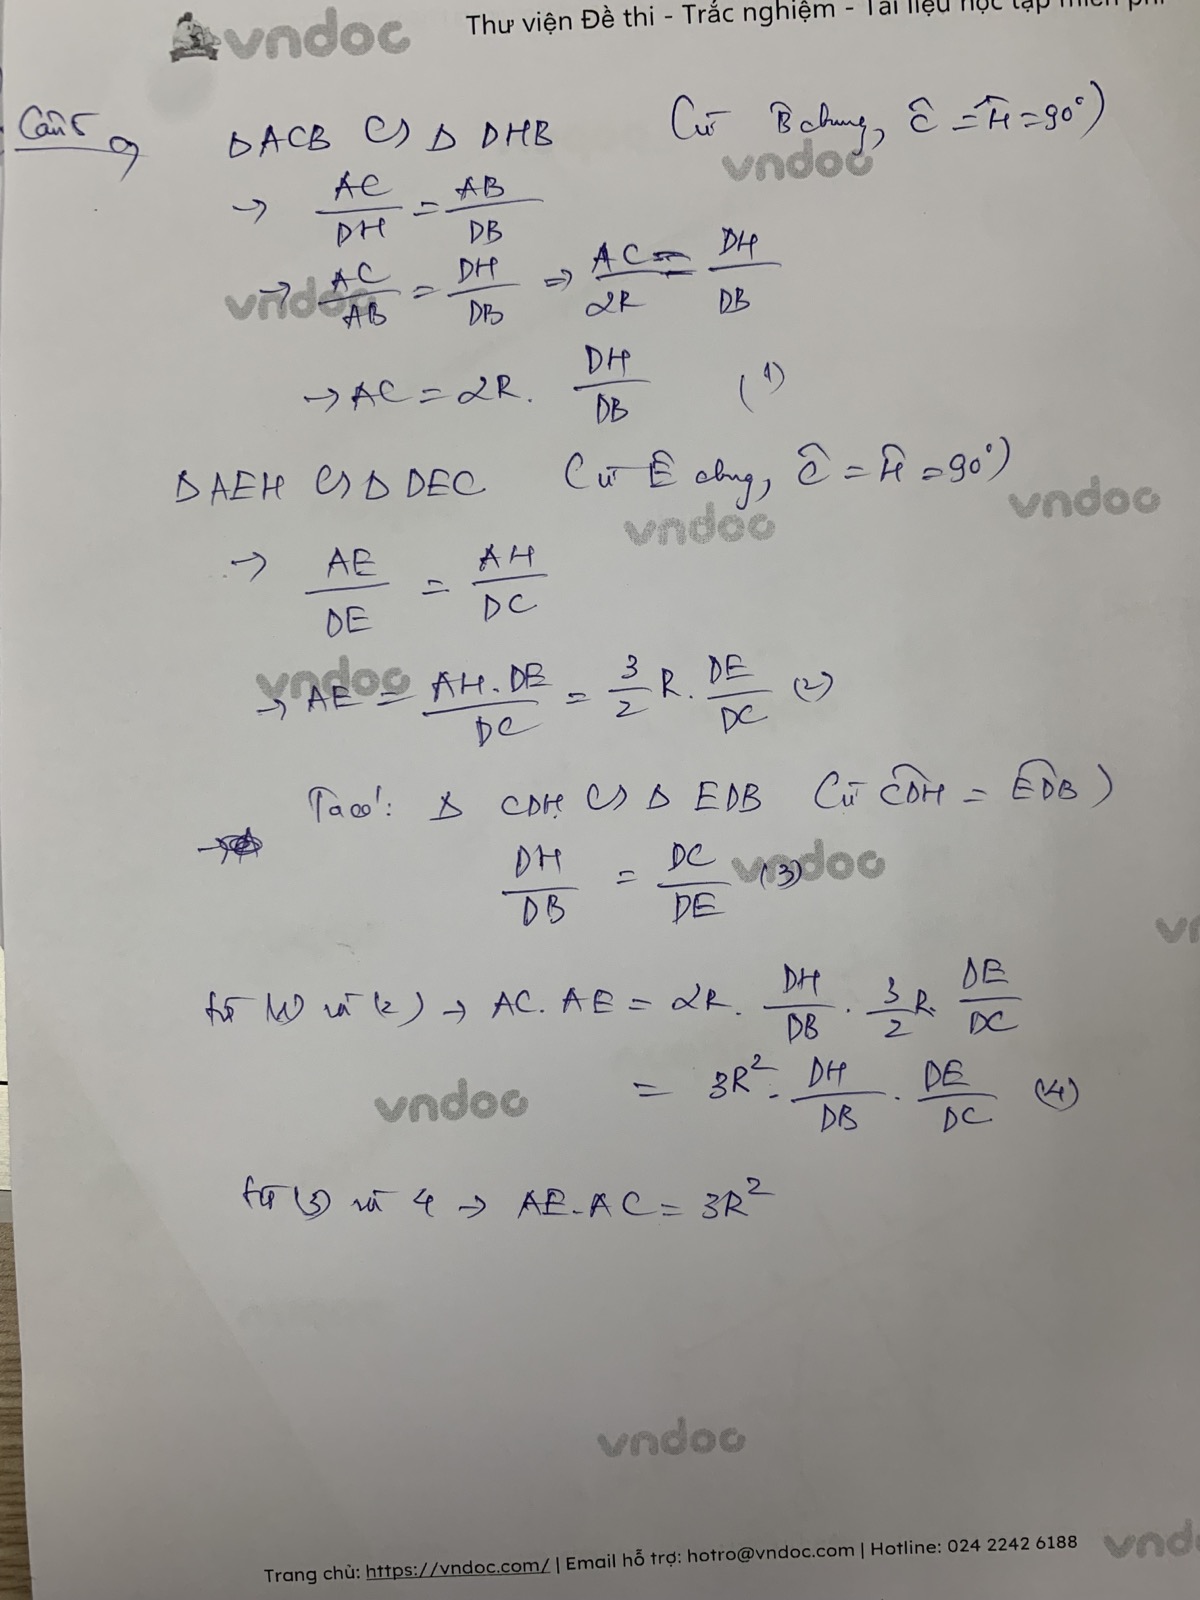 vndoc Thư viện Đề thi - Trắc nghiệm - Tài liệu học tập miễn phí
Câu 5 a) Δ ACB ∽ Δ DHB (Vì B chung, Ĉ = Ĥ = 90°)
vndoc
→ AC/DH = AB/DB
→ AC/AB = DH/DB → AC/2R = DH/DB
vndoc
→ AC = 2R. DH/DB (1)
Δ AEH ∽ Δ DEC (Vì Ê chung, Ĉ = Ĥ = 90°)
vndoc vndoc
→ AE/DE = AH/DC
vndoc
→ AE = AH.DE/DC = 3/2 R. DE/DC (2)
Ta có: Δ CDH ∽ Δ EDB (Vì CDH = EDB)
DH/DB = DC/DE (3)
vndoc
từ (1) và (2) → AC.AE = 2R. DH/DB . 3/2 R. DE/DC
= 3R². DH/DB . DE/DC (4)
vndoc
từ (3) và 4 → AE.AC = 3R²
vndoc
Trang chủ: https://vndoc.com/ | Email hỗ trợ: hotro@vndoc.com | Hotline: 024 2242 6188